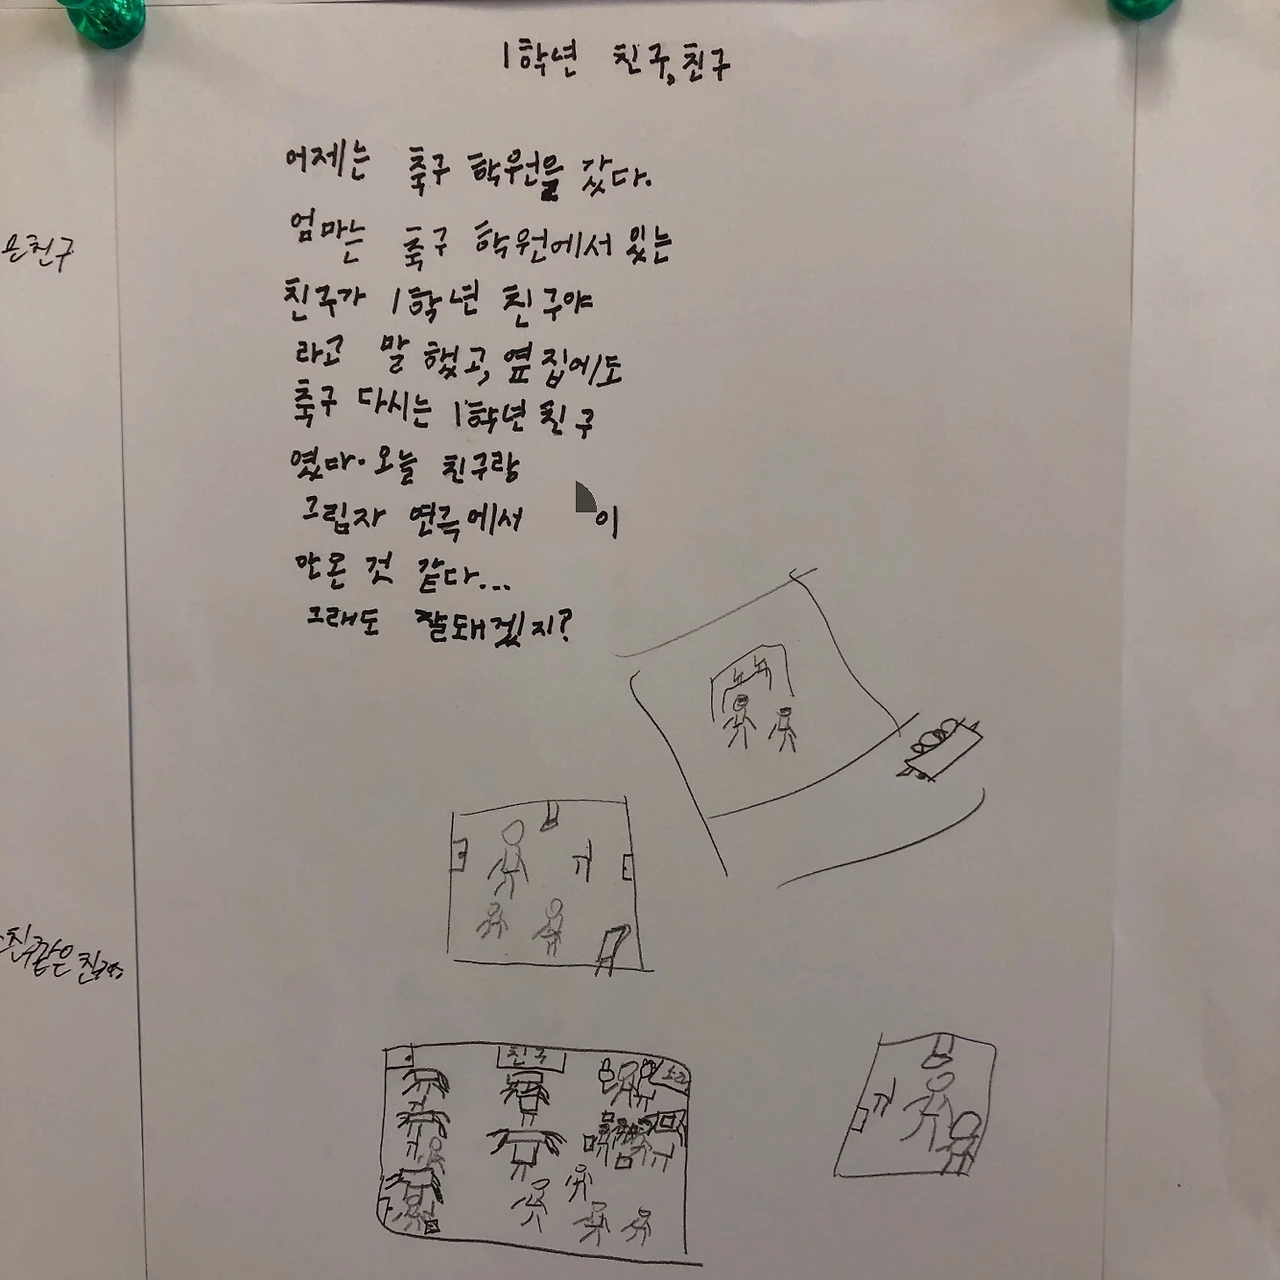 1학년 친구,친구
어제는 축구 학원을 갔다.
엄마는 축구 학원에서 있는
친구가 1학년 친구야
라고 말했고, 옆집에도
축구 다시는 1학년 친구
였다. 오늘 친구랑
그림자 연극에서 이
안온 것 같다...
그래도 잘돼겠지?
은친구
같은
친구